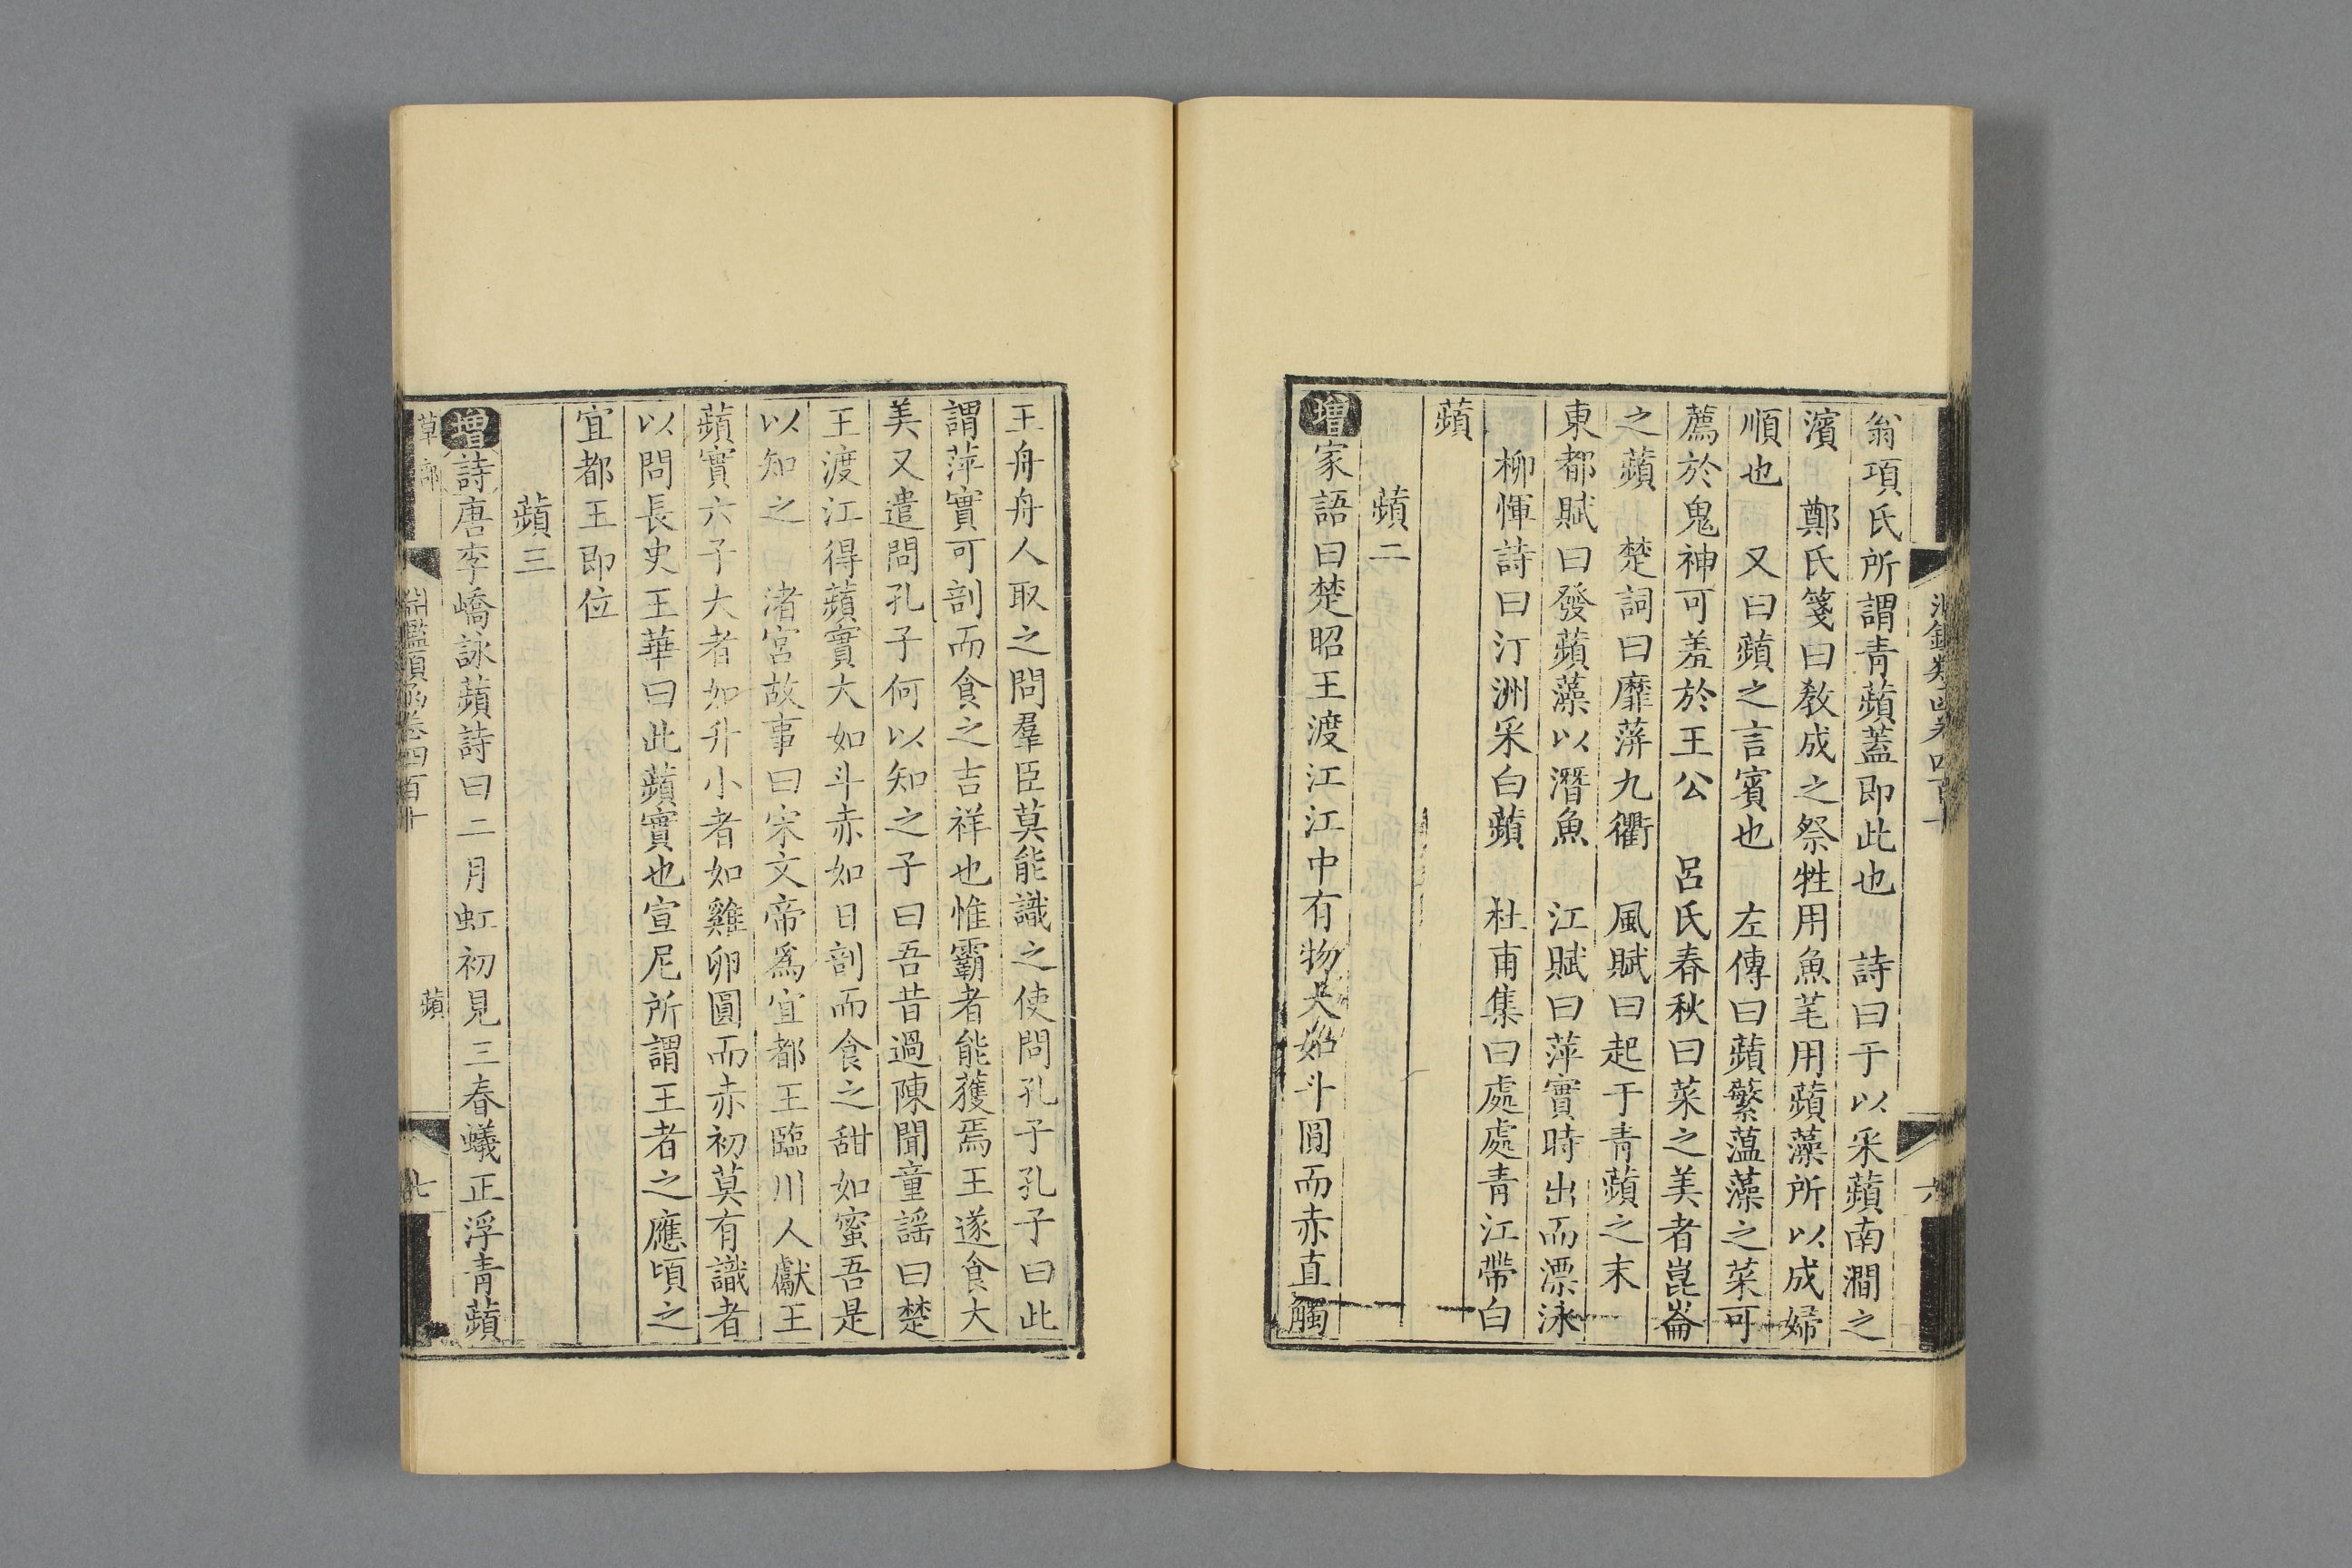 翁項氏所謂青蘋蓋即此也　詩曰于以采蘋南澗之
濱　鄭氏箋曰教成之祭牲用魚芼用蘋藻所以成婦
順也　又曰蘋之言賓也　左傳曰蘋蘩薀藻之菜可
薦於鬼神可羞於王公　呂氏春秋曰菜之美者崑崙
之蘋　楚詞曰靡蓱九衢　風賦曰起于青蘋之末
東都賦曰發蘋藻以潛魚　江賦曰萍實時出而漂泳
柳惲詩曰汀洲采白蘋　杜甫集曰處處青江帶白
蘋
蘋二
增家語曰楚昭王渡江江中有物大如斗圓而赤直觸
王舟舟人取之問羣臣莫能識之使問孔子孔子曰此
謂萍實可剖而食之吉祥也惟霸者能獲焉王遂食大
美又遣問孔子何以知之子曰吾昔過陳聞童謠曰楚
王渡江得蘋實大如斗赤如日剖而食之甜如蜜吾是
以知之　渚宮故事曰宋文帝爲宜都王臨川人獻王
蘋實六子大者如升小者如雞卵圓而赤初莫有識者
以問長史王華曰此蘋實也宣尼所謂王者之應頃之
宜都王即位
蘋三
增詩唐李嶠詠蘋詩曰二月虹初見三春蟻正浮青蘋
草部　鑑類函卷四百十　蘋　七